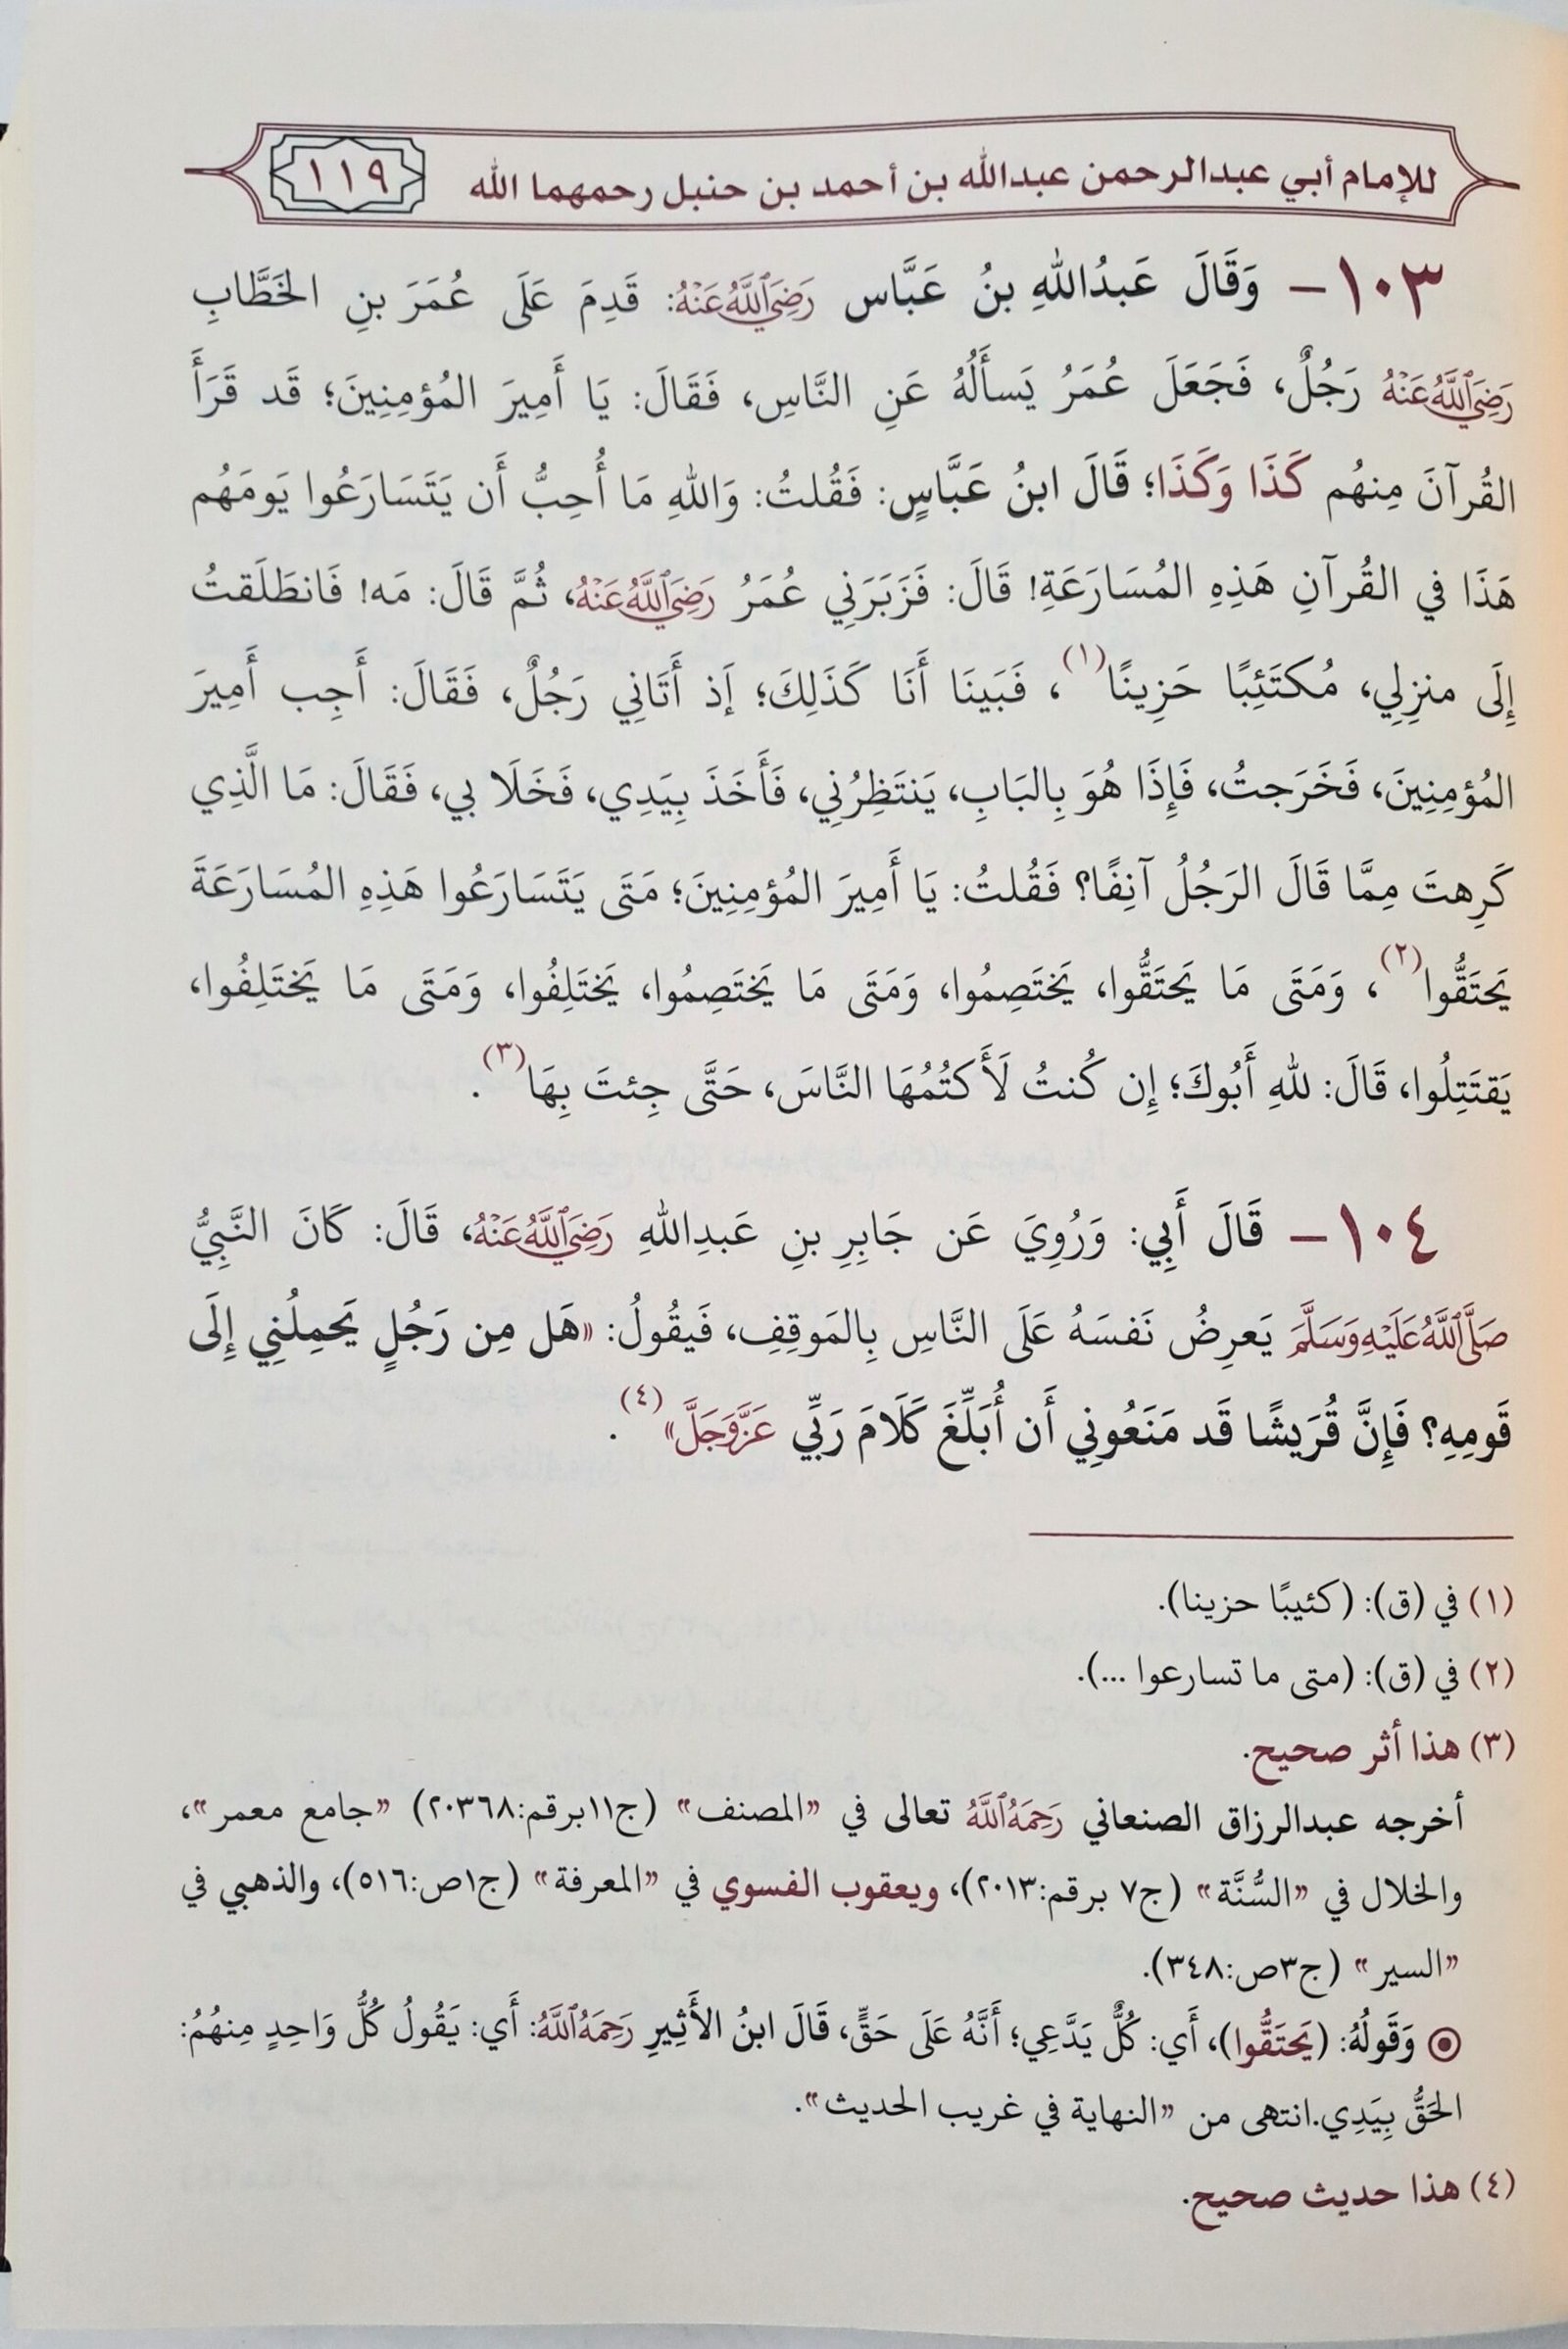 للإمام أبي عبدالرحمن عبدالله بن أحمد بن حنبل رحمهما الله ١١٩
١٠٣- وَقَالَ عَبدُاللهِ بنُ عَبَّاس رَضِيَاللَّهُعَنْهُ: قَدِمَ عَلَى عُمَرَ بنِ الخَطَّابِ
رَضِيَاللَّهُعَنْهُ رَجُلٌ، فَجَعَلَ عُمَرُ يَسأَلُهُ عَنِ النَّاسِ، فَقَالَ: يَا أَمِيرَ المُؤمِنِينَ؛ قَد قَرَأَ
القُرآنَ مِنهُم كَذَا وَكَذَا؛ قَالَ ابنُ عَبَّاسٍ: فَقُلتُ: وَاللهِ مَا أُحِبُّ أَن يَتَسَارَعُوا يَومَهُم
هَذَا في القُرآنِ هَذِهِ المُسَارَعَةِ! قَالَ: فَزَبَرَنِي عُمَرُ رَضِيَاللَّهُعَنْهُ، ثُمَّ قَالَ: مَه! فَانطَلَقتُ
إِلَى منزِلِي، مُكتَئِبًا حَزِينًا(١)، فَبَينَا أَنَا كَذَلِكَ؛ إَذ أَتَانِي رَجُلٌ، فَقَالَ: أَجِب أَمِيرَ
المُؤمِنِينَ، فَخَرَجتُ، فَإِذَا هُوَ بِالبَابِ، يَنتَظِرُنِي، فَأَخَذَ بِيَدِي، فَخَلَا بي، فَقَالَ: مَا الَّذِي
كَرِهتَ مِمَّا قَالَ الرَجُلُ آنِفًا؟ فَقُلتُ: يَا أَمِيرَ المُؤمِنِينَ؛ مَتَى يَتَسَارَعُوا هَذِهِ المُسَارَعَةَ
يَحتَقُّوا(٢)، وَمَتَى مَا يَحتَقُّوا، يَختَصِمُوا، وَمَتَى مَا يَختَصِمُوا، يَختَلِفُوا، وَمَتَى مَا يَختَلِفُوا،
يَقتَتِلُوا، قَالَ: للهِ أَبُوكَ؛ إِن كُنتُ لَأَكتُمُهَا النَّاسَ، حَتَّى جِئتَ بِهَا(٣).
١٠٤- قَالَ أَبِي: وَرُوِيَ عَن جَابِرِ بنِ عَبدِاللهِ رَضِيَاللَّهُعَنْهُ، قَالَ: كَانَ النَّبِيُّ
صَلَّىاللَّهُعَلَيْهِوَسَلَّمَ يَعرِضُ نَفسَهُ عَلَى النَّاسِ بِالمَوقِفِ، فَيقُولُ: «هَل مِن رَجُلٍ يَحمِلُنِي إِلَى
قَومِهِ؟ فَإِنَّ قُرَيشًا قَد مَنَعُونِي أَن أُبَلِّغَ كَلَامَ رَبِّي عَزَّوَجَلَّ»(٤).
(١) في (ق): (كئيبًا حزينا).
(٢) في (ق): (متى ما تسارعوا ...).
(٣) هذا أثر صحيح.
أخرجه عبدالرزاق الصنعاني رَحِمَهُاللَّهُ تعالى في «المصنف» (ج١١برقم:٢٠٣٦٨) «جامع معمر»،
والخلال في «السُّنَّة» (ج٧ برقم:٢٠١٣)، ويعقوب الفسوي في «المعرفة» (ج١ص:٥١٦)، والذهبي في
«السير» (ج٣ص:٣٤٨).
◉ وَقَولُهُ: (يَحتَقُّوا)، أَي: كُلٌّ يَدَّعِي؛ أَنَّهُ عَلَى حَقٍّ، قَالَ ابنُ الأَثِيرِ رَحِمَهُاللَّهُ: أَي: يَقُولُ كُلُّ وَاحِدٍ مِنهُمُ:
الحَقُّ بِيَدِي.انتهى من «النهاية في غريب الحديث».
(٤) هذا حديث صحيح.